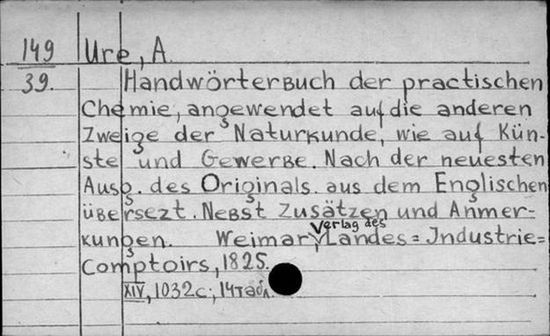 149 Ure, A.
39. Handwörterbuch der practischen
Chemie, angewendet auf die anderen
Zweige der Naturkunde, wie auf Kün-
ste und Gewerbe. Nach der neuesten
Ausg. des Originals. aus dem Englischen
übersezt. Nebst Zusätzen und Anmer=
kungen. Weimar, Verlag des Landes=Industrie=
Comptoirs, 1825.
XIV, 1032 с; 14 табл.